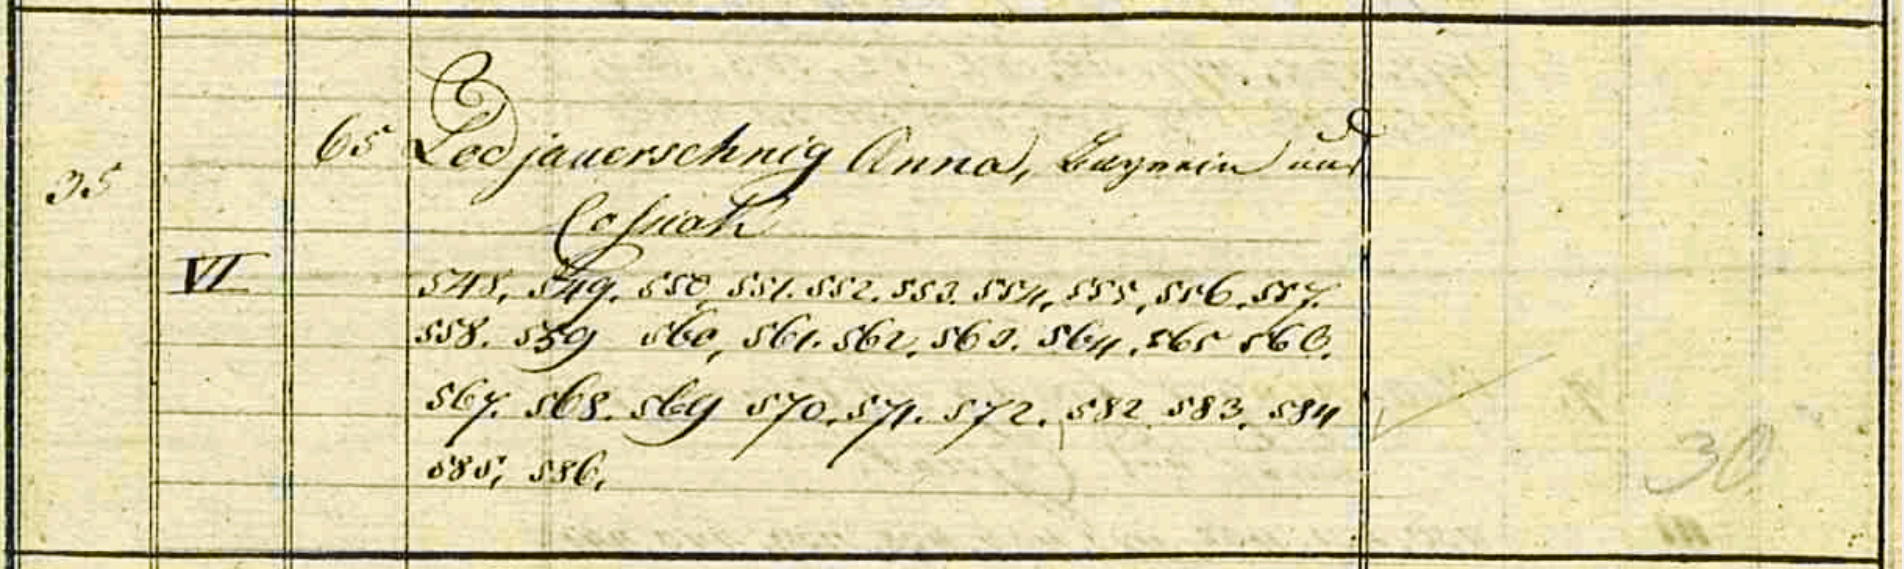 35
VI
65 Ledjauerschnig Anna,
548, 549. 550, 551. 552. 553. 554, 555, 556. 557.
558. 559 560, 561. 562. 563. 564. 565 566.
567. 568. 569 570. 571. 572. 582 583. 584
585, 586,
30